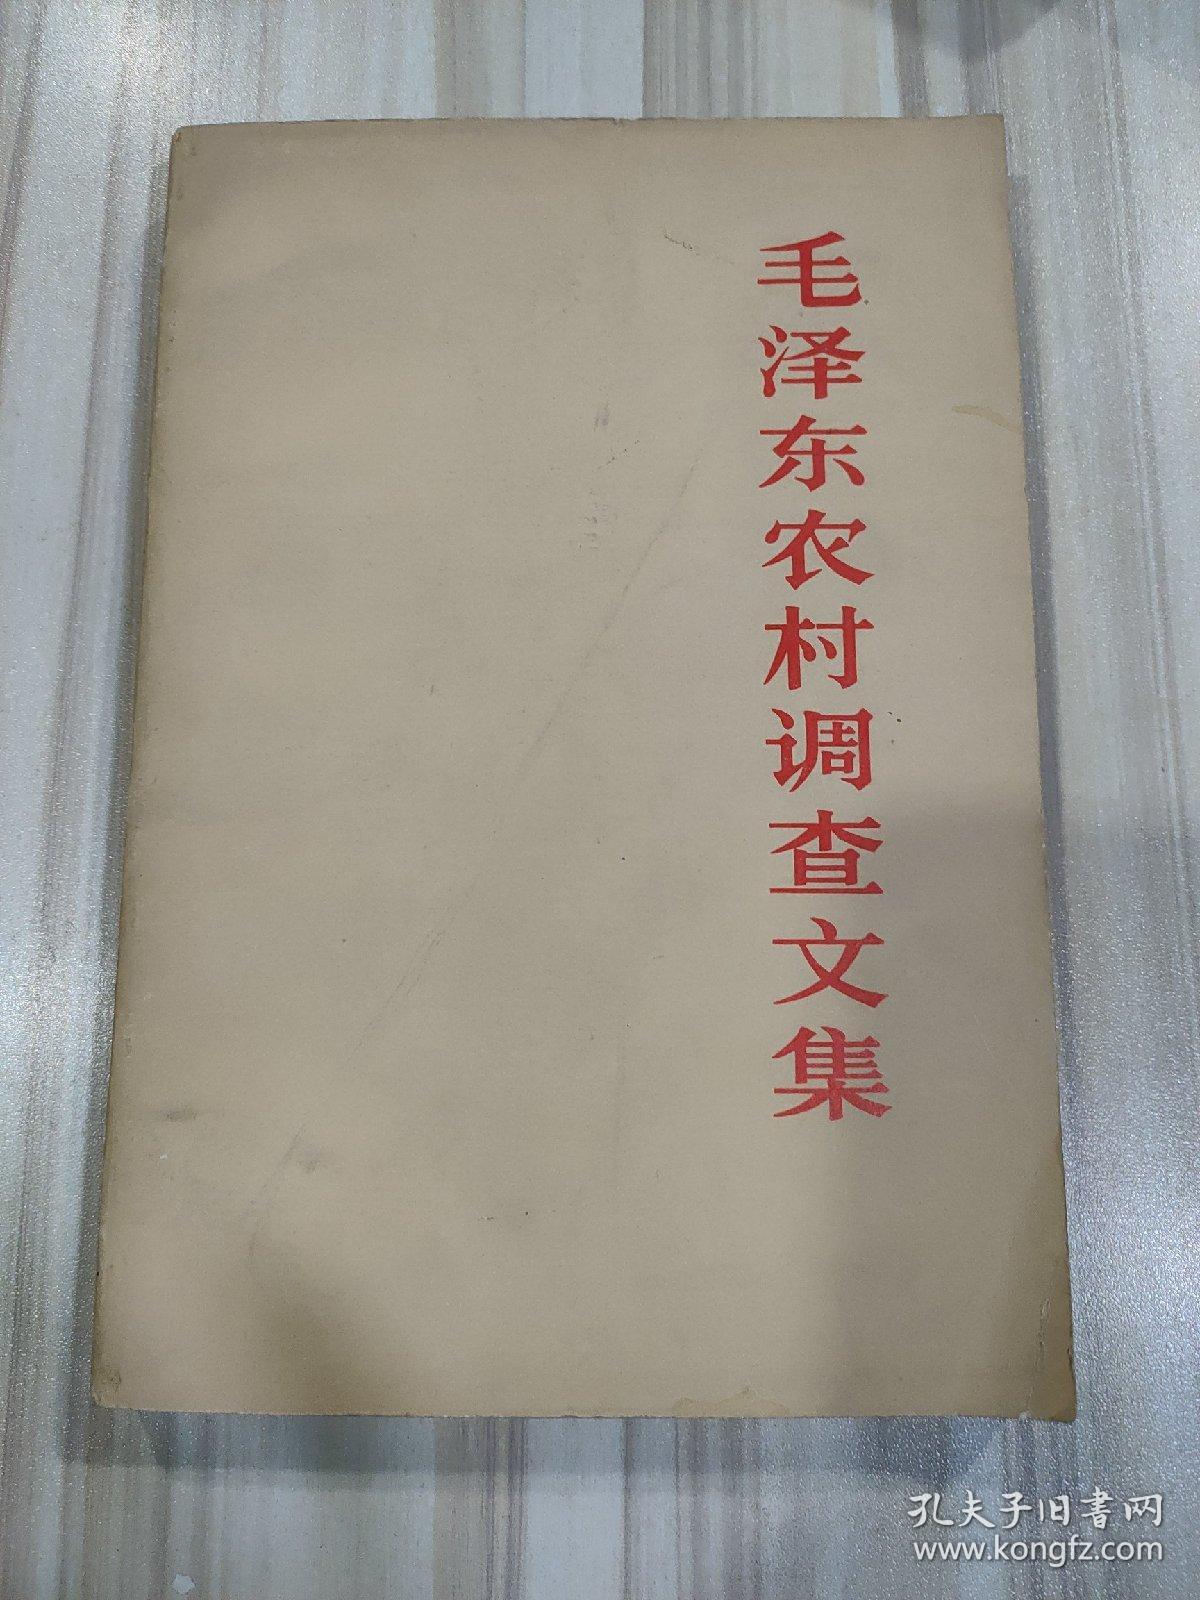 毛泽东农村调查文集
孔夫子旧書网
www.kongfz.com